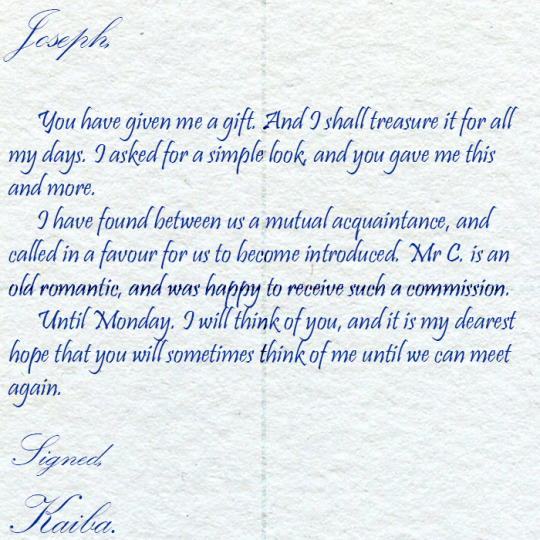 Joseph,
You have given me a gift. And I shall treasure it for all
my days. I asked for a simple look, and you gave me this
and more.
I have found between us a mutual acquaintance, and
called in a favour for us to become introduced. Mr C. is an
old romantic, and was happy to receive such a commission.
Until Monday. I will think of you, and it is my dearest
hope that you will sometimes think of me until we can meet
again.
Signed,
Kaiba.